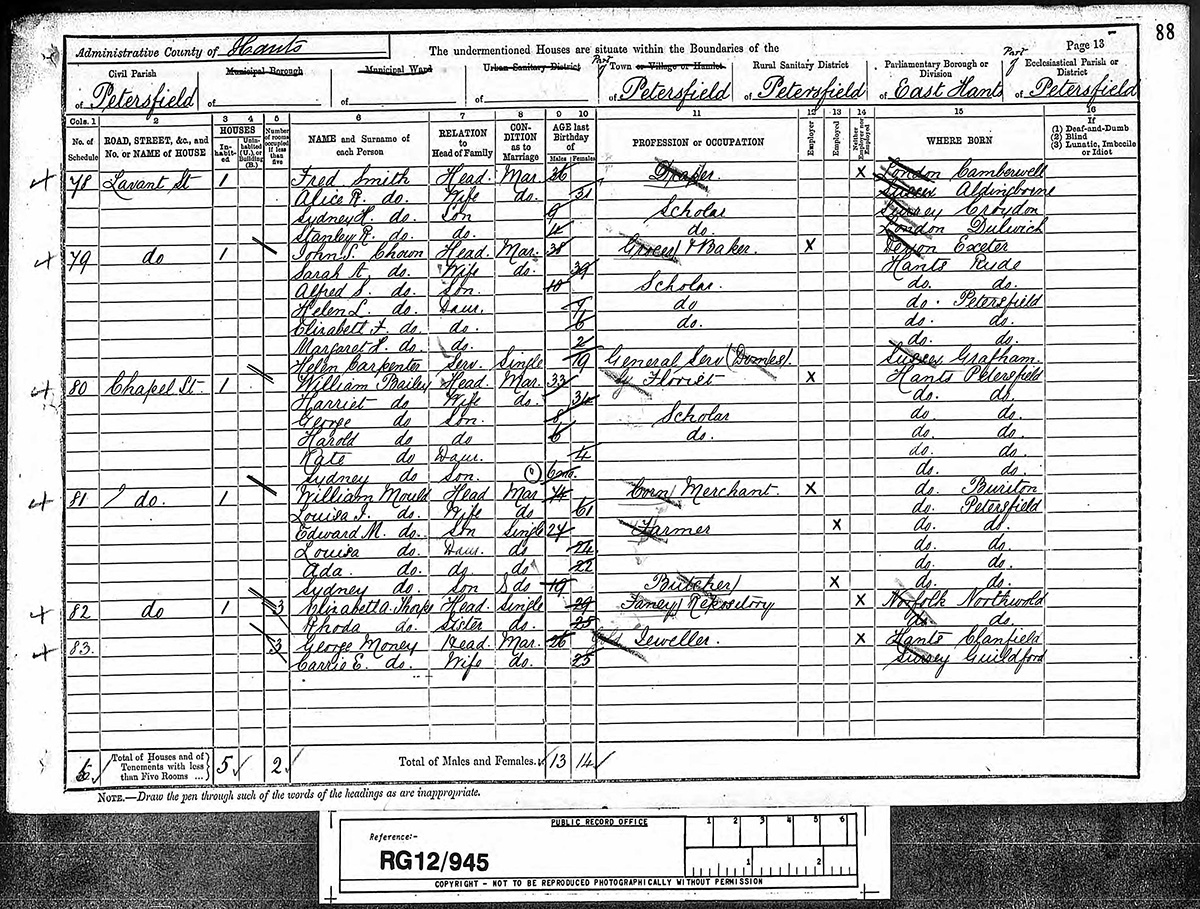 88
Administrative County of Hants
The undermentioned Houses are situate within the Boundaries of the
Page 13
Civil Parish of Petersfield
Municipal Borough of
Municipal Ward of
Urban Sanitary District of
Part of Town or Village or Hamlet of Petersfield
Rural Sanitary District of Petersfield
Parliamentary Borough or Division of East Hants
Part of Ecclesiastical Parish or District of Petersfield
Cols. 1 2 3 4 5 6 7 8 9 10 11 12 13 14 15 16
No. of Schedule
ROAD, STREET, &c., and No. or NAME of HOUSE
HOUSES
Inhabited
Uninhabited (U.), or Building (B.)
Number of rooms occupied if less than five
NAME and Surname of each Person
RELATION to Head of Family
CONDITION as to Marriage
AGE last Birthday of
Males Females
PROFESSION or OCCUPATION
Employer
Employed
Neither Employer nor Employed
WHERE BORN
If
(1) Deaf-and-Dumb
(2) Blind
(3) Lunatic, Imbecile or Idiot
78 Lavant St 1 Fred Smith Head Mar 36 Draper X London Camberwell
Alice R. do. Wife do. 31 Sussex Aldingborne
Sydney H. do. Son 9 Scholar Surrey Croydon
Stanley R. do. do. 4 do. London Dulwich
79 do 1 John S. Chown Head Mar. 38 Grocer & Baker X Devon Exeter
Sarah A. do. Wife do. 39 Hants Ryde
Alfred S. do. Son. 10 Scholar. do. do.
Helen L. do. Daur. 7 do do. Petersfield
Elizabeth F. do. do. 6 do. do. do.
Margaret L. do. do. 2 do. do.
Helen Carpenter Serv. Single 19 General Serv (Domes). Sussex Graffham.
80 Chapel St. 1 William Bailey Head Mar. 33 Florist X Hants Petersfield
Harriet do Wife do. 34 do. do.
George do Son. 8 Scholar do do.
Harold do do 6 do. do. do.
Kate do Daur. 4 do. do.
Sydney do Son. 6 mo. do. do.
81 do. 1 William Mould Head Mar Corn Merchant. X do. Buriton
Louisa J. do. Wife do 61 do. Petersfield
Edward M. do. Son Single 24 Farmer X do. do.
Louisa do. Daur. do 24 do. do.
Ada. do. do do 22 do. do.
Sydney do. Son do 19 Butcher X do. do.
82 do 1 3 Elizabeth A. Thorpe Head Single 29 Fancy Repository X Norfolk Northwold
Rhoda do. Sister do. 25 do do.
83. 3 George Money Head Mar. 26 Jeweller. X Hants Clanfield
Carrie E. do. Wife do. 25 Surrey Guildford
Total of Houses and of Tenements with less than Five Rooms ... 5 2
Total of Males and Females... 13 14
NOTE.—Draw the pen through such of the words of the headings as are inappropriate.
PUBLIC RECORD OFFICE
1 2 3 4 5 6
Reference:-
RG12/945
1 2
COPYRIGHT - NOT TO BE REPRODUCED PHOTOGRAPHICALLY WITHOUT PERMISSION